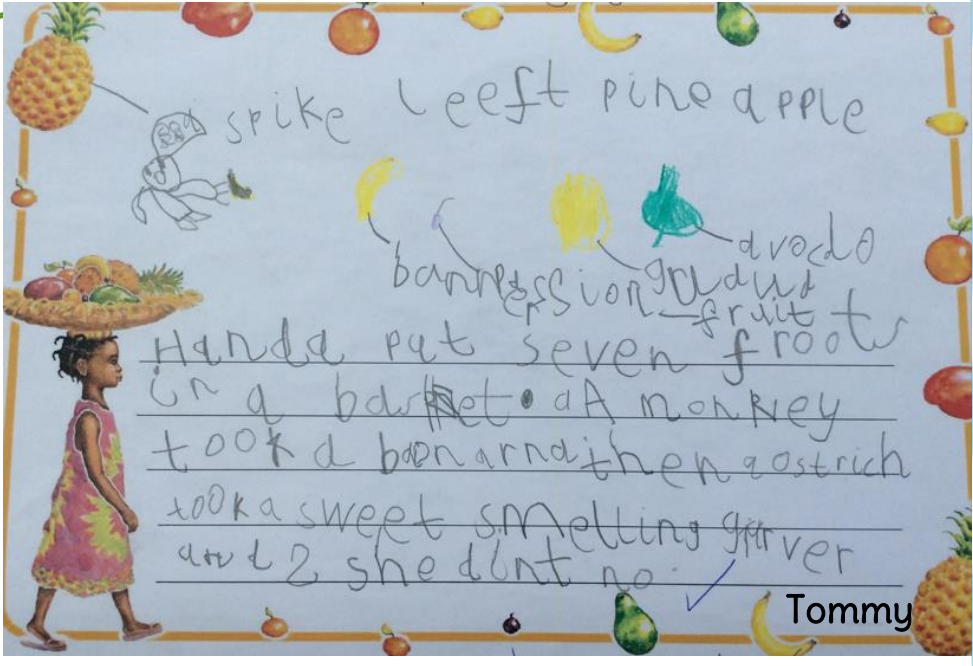 spike leeft pineapple
avodo
bann
ession fruit
Handa put seven froots
in a basket. A monkey
took a banarna then a ostrich
took a sweet smelling garver
and 2 she dint no.
Tommy